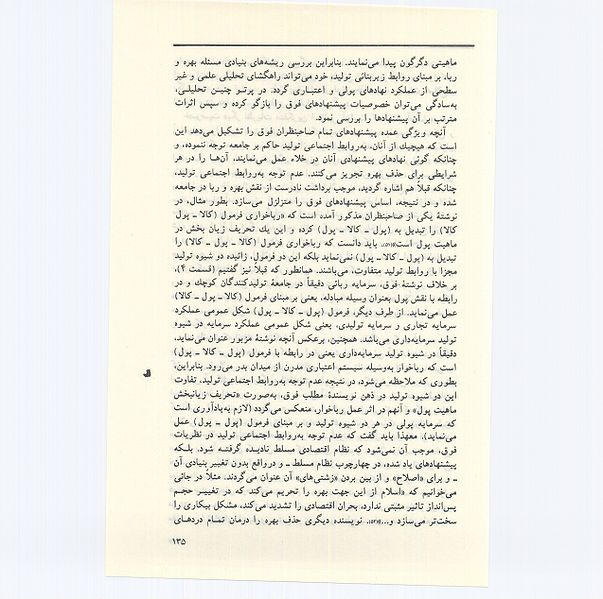 ماهیتی دگرگون پیدا می‌نمایند. بنابراین بررسی ریشه‌های بنیادی مسئله بهره و
ربا، بر مبنای روابط زیربنائی تولید، خود می‌تواند راهگشای تحلیلی علمی و غیر
سطحی از عملکرد نهادهای پولی و اعتباری گردد. در پرتو چنین تحلیلی،
به‌سادگی می‌توان خصوصیات پیشنهادهای فوق را بازگو کرده و سپس اثرات
مترتب بر آن پیشنهادها را بررسی نمود.
آنچه ویژگی عمده پیشنهادهای تمام صاحبنظران فوق را تشکیل می‌دهد این
است که هیچیك از آنان، به‌روابط اجتماعی تولید حاکم بر جامعه توجه ننموده، و
چنانکه گوئی نهادهای پیشنهادی آنان در خلاء عمل می‌نمایند، آن‌ها را در هر
شرایطی برای حذف بهره تجویز می‌کنند. عدم توجه به‌روابط اجتماعی تولید،
چنانکه قبلاً هم اشاره گردید، موجب برداشت نادرست از نقش بهره و ربا در جامعه
شده و در نتیجه، اساس پیشنهادهای فوق را متزلزل می‌سازد. بطور مثال، در
نوشتهٔ یکی از صاحبنظران مذکور آمده است که «رباخواری فرمول (کالا ـ پول
کالا) را تبدیل به (پول ـ کالا ـ پول) کرده و این یك تحریف زیان بخش در
ماهیت پول است». باید دانست که رباخواری فرمول (کالا ـ پول ـ کالا) را
تبدیل به (پول ـ کالا ـ پول) نمی‌نماید بلکه این دو فرمول، زائیده دو شیوه تولید
مجزا با روابط تولید متفاوت، می‌باشند. همانطور که قبلا نیز گفتیم (قسمت ۴)،
بر خلاف نوشتهٔ فوق، سرمایه ربائی دقیقاً در جامعهٔ تولیدکنندگان کوچك و در
رابطه با نقش پول بعنوان وسیله مبادله، یعنی بر مبنای فرمول (کالا ـ پول ـ کالا)
عمل می‌نماید. از طرف دیگر، فرمول (پول ـ کالا ـ پول) شکل عمومی عملکرد
سرمایه تجاری و سرمایه تولیدی، یعنی شکل عمومی عملکرد سرمایه در شیوه
تولید سرمایه‌داری می‌باشد. همچنین، برعکس آنچه نوشتهٔ مزبور عنوان می‌نماید،
دقیقاً در شیوه تولید سرمایه‌داری یعنی در رابطه با فرمول (پول ـ کالا ـ پول)
است که رباخوار به‌وسیله سیستم اعتباری مدرن از میدان بدر می‌رود. بنابراین،
بطوری که ملاحظه می‌شود، در نتیجه عدم توجه به‌روابط اجتماعی تولید، تفاوت
این دو شیوه تولید در ذهن نویسندهٔ مطلب فوق، به‌صورت «تحریف زیانبخش
ماهیت پول» و آنهم در اثر عمل رباخوار، منعکس می‌گردد (لازم به‌یادآوری است
که سرمایه پولی در هر دو شیوه تولید و بر مبنای فرمول (پول ـ پول) عمل
می‌نماید). معهذا باید گفت که عدم توجه به‌روابط اجتماعی تولید در نظریات
فوق، موجب آن نمی‌شود که نظام اقتصادی مسلط نادیده گرفته شود. بلکه
پیشنهادهای یاد شده، در چهارچوب نظام مسلط ـ و درواقع بدون تغییر بنیادی آن
ـ و برای «اصلاح» و از بین بردن «زشتی‌های» آن عنوان می‌گردند. مثلاً در جائی
می‌خوانیم که «اسلام از این جهت بهره را تحریم می‌کند که در تغییر حجم
پس‌انداز تاثیر مثبتی ندارد، بحران اقتصادی را تشدید می‌کند، مشکل بیکاری را
سخت‌تر می‌سازد و...». نویسنده دیگری حذف بهره را درمان تمام دردهای
۱۳۵